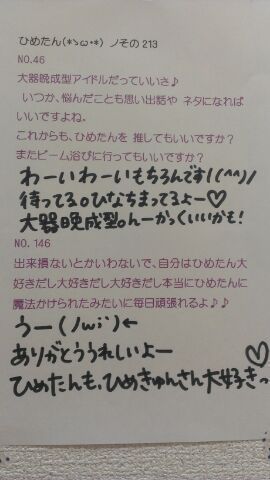 ひめたん(*>ω<*) ノその213
NO.46
大器晩成型アイドルだっていいさ♪
いつか、悩んだことも思い出話や ネタになれば
いいですよね。
これからも、ひめたんを 推してもいいですか?
またビーム浴びに行ってもいいですか?
わーいわーいもちろんです!(^^)/
待ってる。ひなちまってるよー♡
大器晩成型。んーかっくいいかも!
NO.146
出来損ないとかいわないで、自分はひめたん大
好きだし大好きだし大好きだし本当にひめたんに
魔法かけられたみたいに毎日頑張れるよ♪♪
うー(ノω;`)←
ありがとううれしいよー
ひめたんも、ひめきゅんさん大好きっ♡